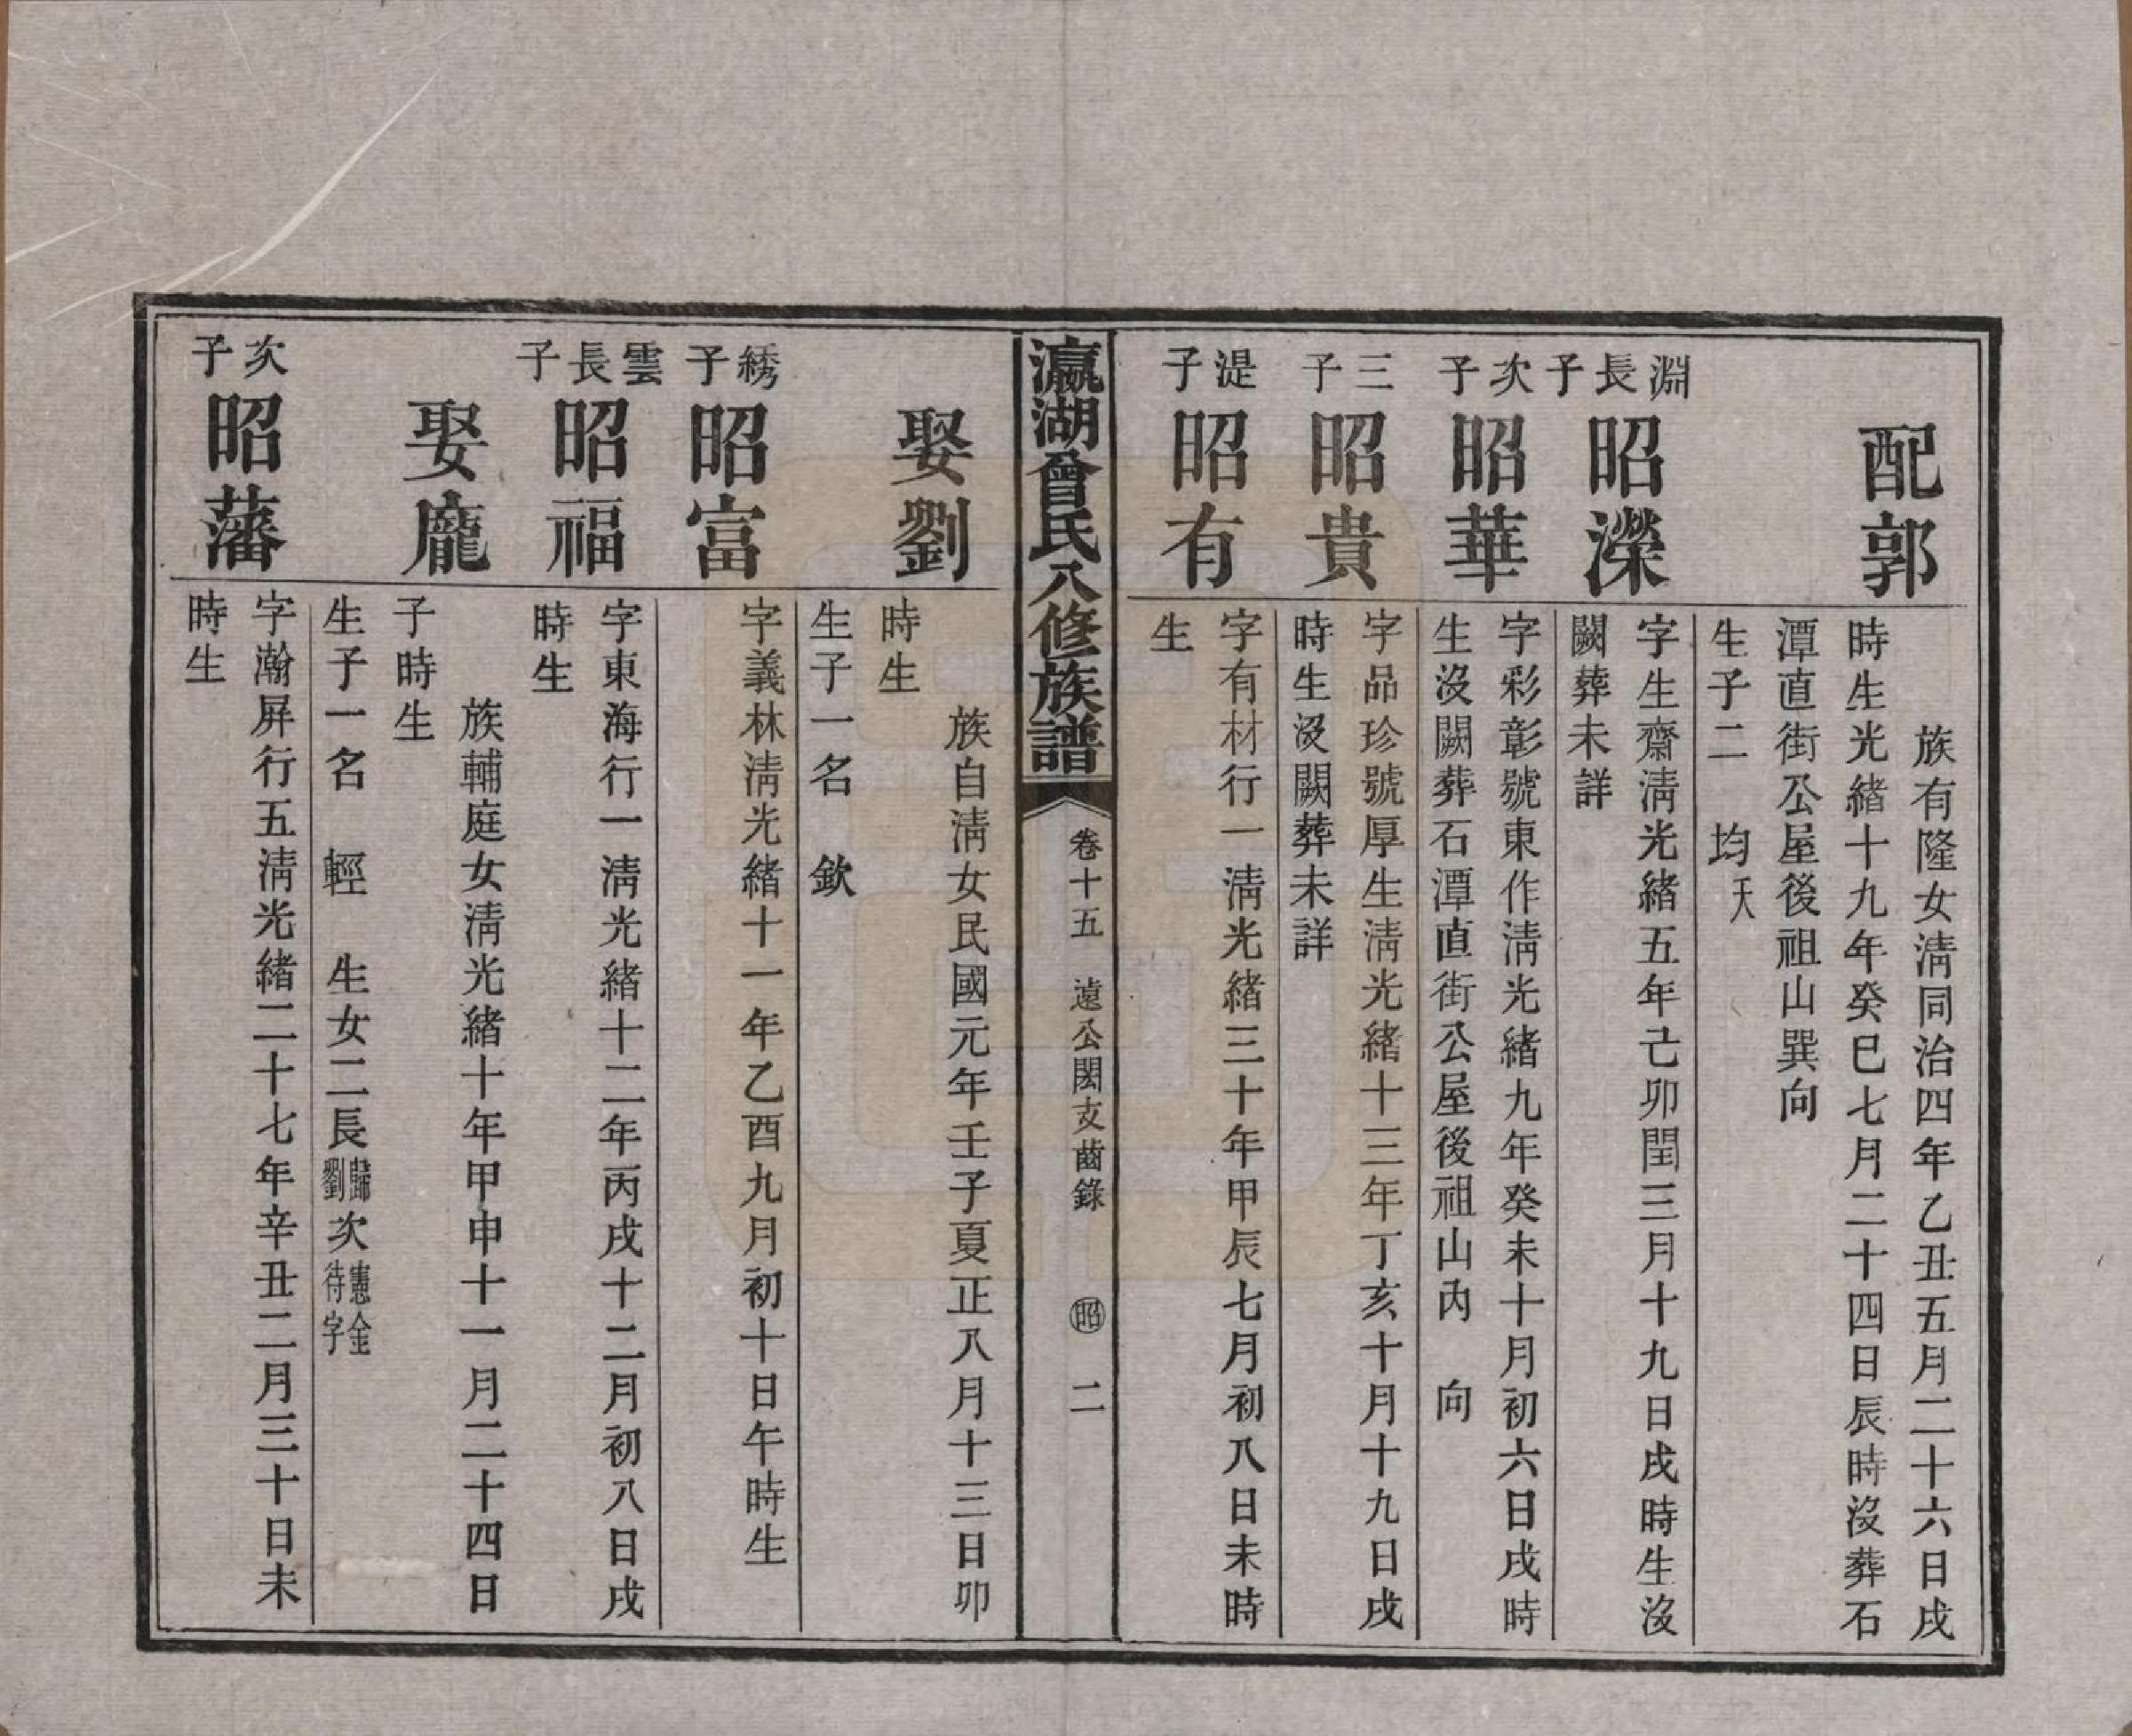 配郭
族有隆女淸同治四年乙丑五月二十六日戌
時生光緒十九年癸巳七月二十四日辰時沒葬石
潭直街公屋後祖山巽向
生子二 均夭
淵長子
昭濚
字生齋淸光緒五年己卯閏三月十九日戌時生沒
闕葬未詳
次子
昭華
字彩彰號東作淸光緒九年癸未十月初六日戌時
生沒闕葬石潭直街公屋後祖山內 向
三子
昭貴
字品珍號厚生淸光緒十三年丁亥十月十九日戌
時生沒闕葬未詳
湜子
昭有
字有材行一淸光緒三十年甲辰七月初八日未時
生
瀛湖曾氏八修族譜
卷十五 遠公閎支齒錄 昭 二
娶劉
族自淸女民國元年壬子夏正八月十三日卯
時生
生子一名 欽
綉子
昭富
字義林淸光緒十一年乙酉九月初十日午時生
雲長子
昭福
字東海行一淸光緒十二年丙戌十二月初八日戌
時生
娶龐
族輔庭女淸光緒十年甲申十一月二十四日
子時生
生子一名 輕 生女二長歸劉次憲金待字
次子
昭藩
字瀚屏行五淸光緒二十七年辛丑二月三十日未
時生